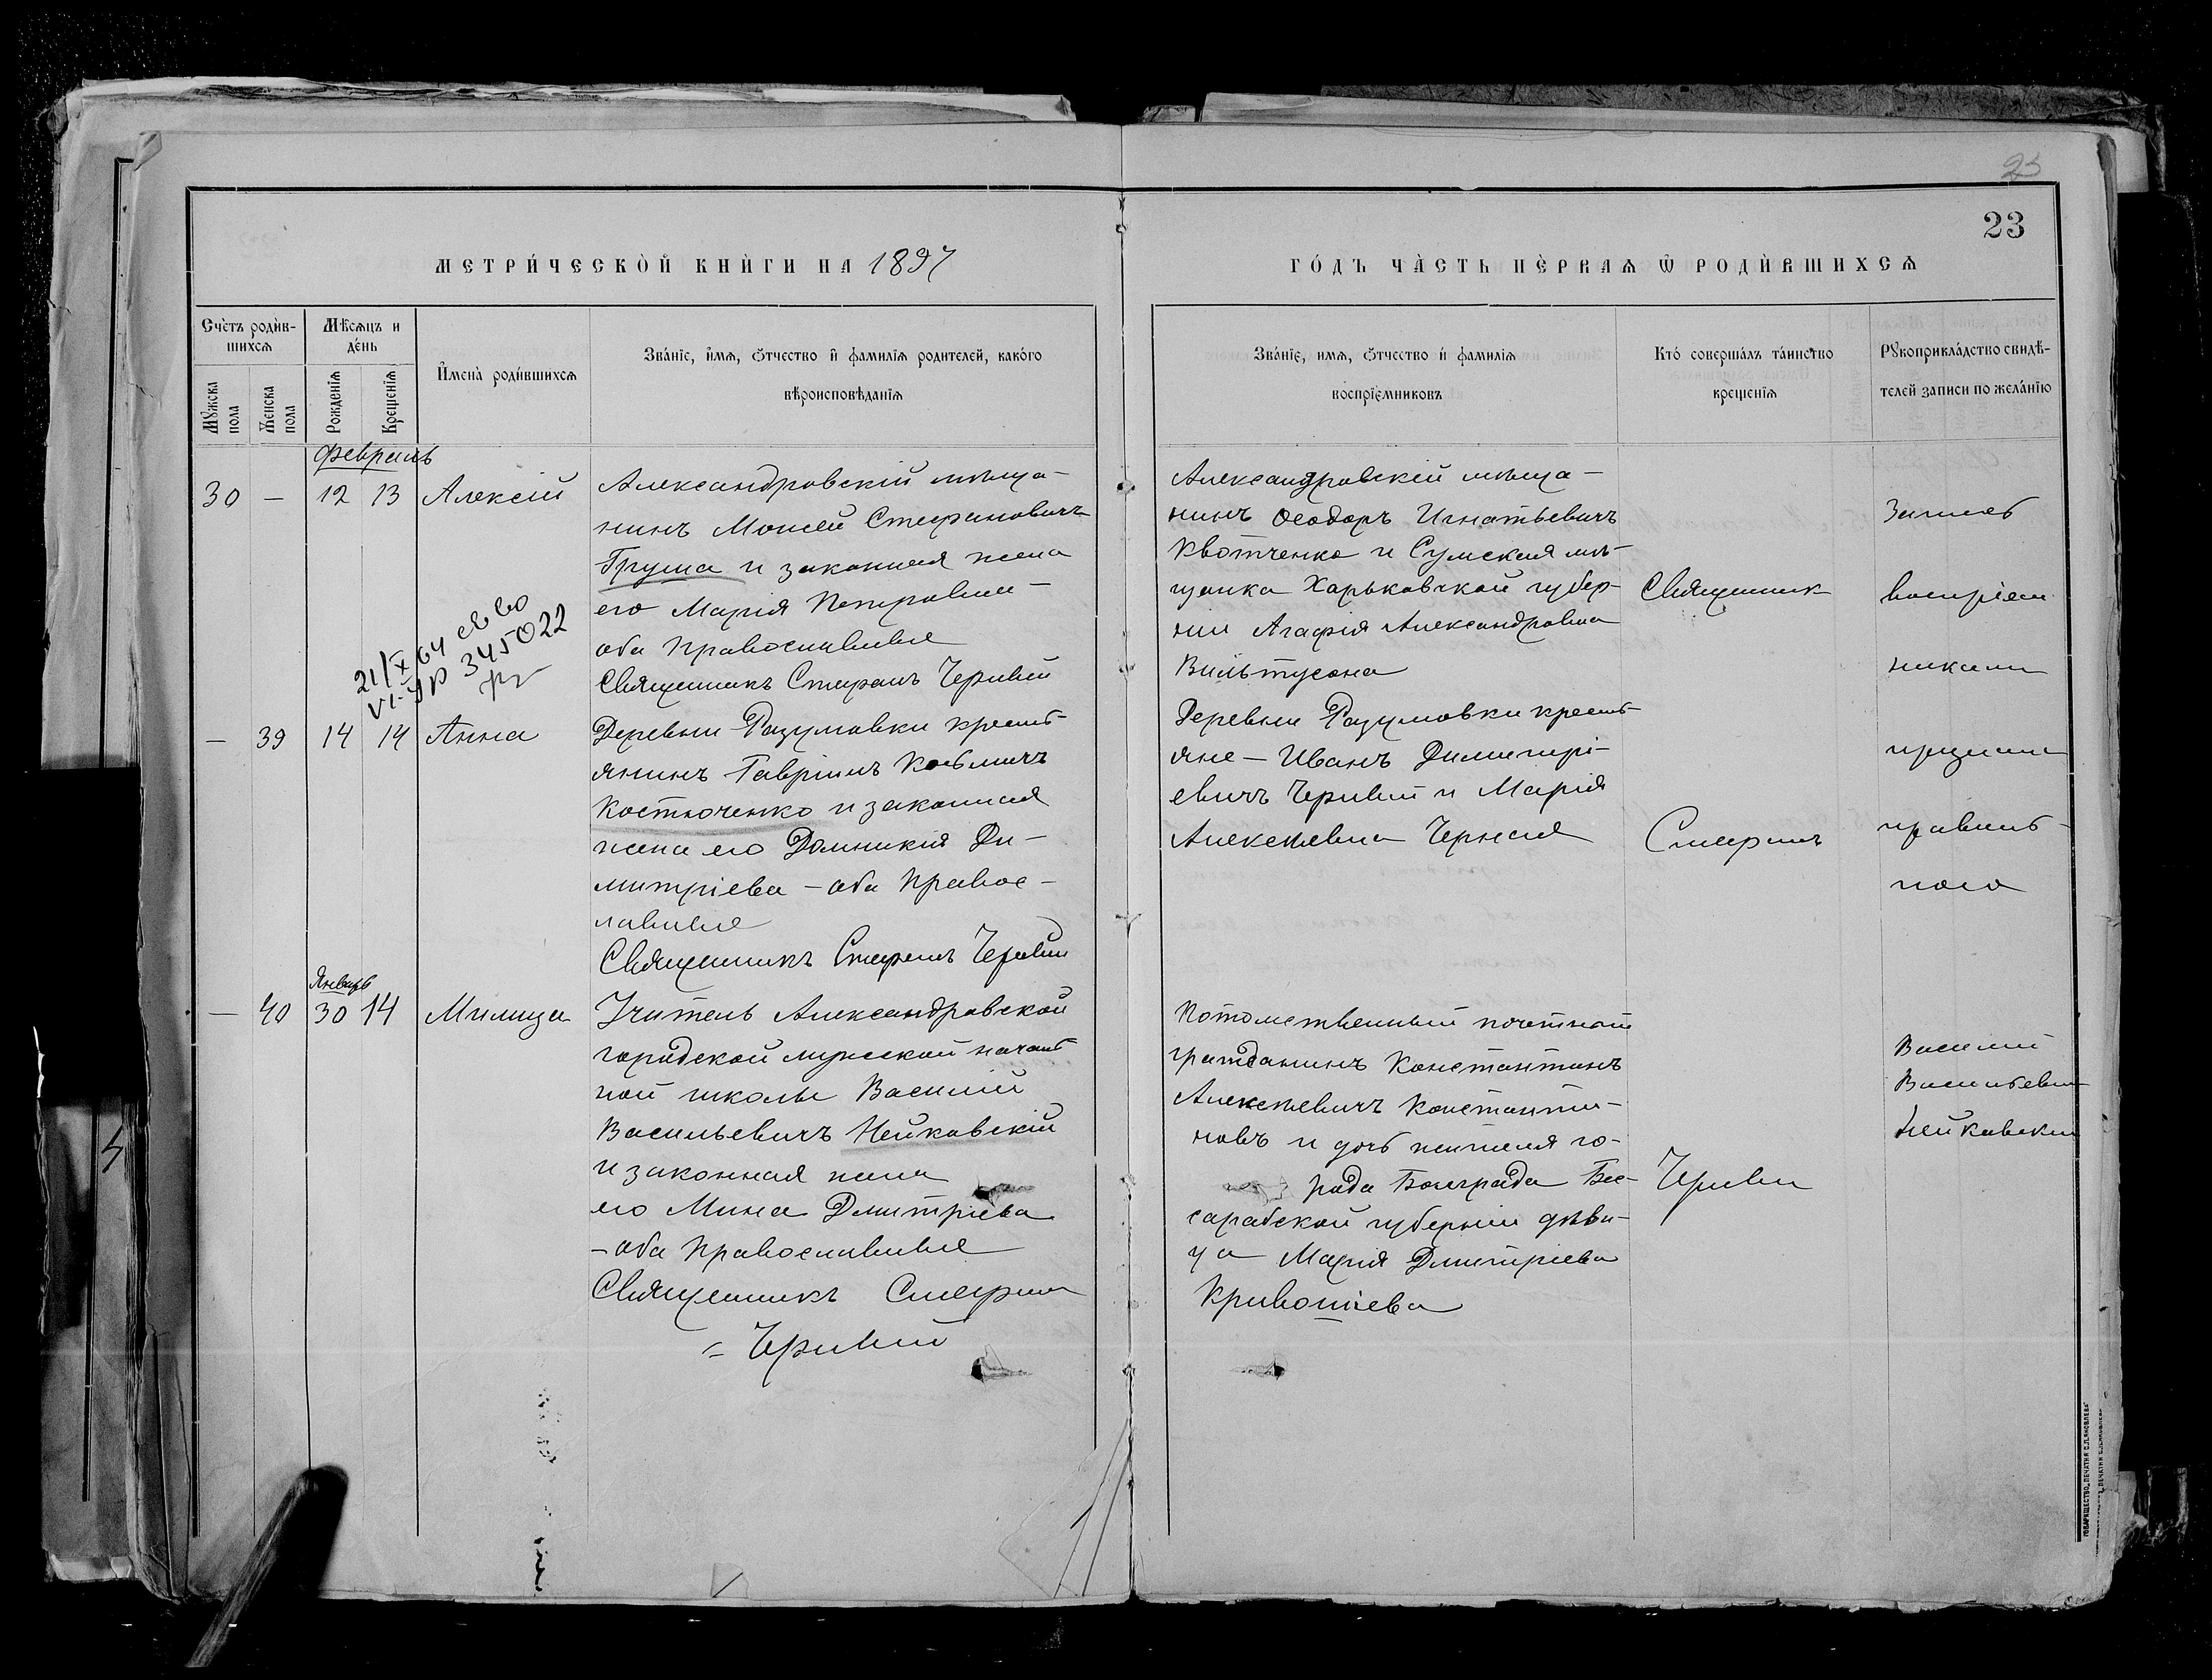 23
23
МЕТРИ́ЧЕСКОЙ КНИ́ГИ НА 1897
ГО́ДЪ ЧА́СТЬ ПЕ́РВАѦ Ѡ РОДИ́ВШИХСѦ
Счетъ роди́в-
шихсѧ
Мꙋжска
пола
Женска
пола
Мѣсѧцъ и
де́нь
Рожденїѧ
Крещенїѧ
И҆мена̀ роди́вшихсѧ
Зва́нїе, и҆мѧ, ѻтчество и҆ фамилїѧ родителей, како́го
вѣроисповѣданїѧ
Зва́нїе, имѧ, ѻтчество и҆ фамилїѧ
воспрїемниковъ
Кто́ совершалъ та́инство
крещенїѧ
Рꙋкоприкла́дство свидѣ-
телей записи по жела́нїю
Февраль
30 — 12 13 Алексій
Александровскій мѣща-
нинъ Моисей Стефановичъ
Груша и законная жена
его Марія Петровна —
оба Православные
Священникъ Стефанъ
Александровскій мѣща-
нинъ Ѳеодоръ Игнатьевичъ
Квотченко и Сумская мѣ-
щанка Харьковской губер-
ніи Агафія Александровна
21/X 64 св во
VI-ЯР 345022
— 39 14 14 Анна
Деревни Разумовки кресть-
янинъ Гавріилъ Козьмичъ
Костюченко и законная
жена его Домникія Ди-
митріева — оба Правос-
лавные
Священникъ Стефанъ
Деревни Разумовки кресть-
яне — Иванъ Димитрі-
евичъ и Марія
Алексѣевна Черная
Священникъ
Стефанъ
Запись
воспріем
никами
правиль-
ною
Январь
— 40 30 14 Милица
Учитель Александровской
городской мужской началь
ной школы Василій
Васильевичъ Нейковскій
и законная жена
его Мина Дмитріева
— оба Православные
Священникъ Стефанъ
Потомственный почетный
гражданинъ Константинъ
Алексѣевичъ Константи-
новъ и дочь жителя го-
рода Болграда Бес-
сарабской губерніи дѣви-
ца Марія Дмитріева
Василий
Васильевич
Нейковский